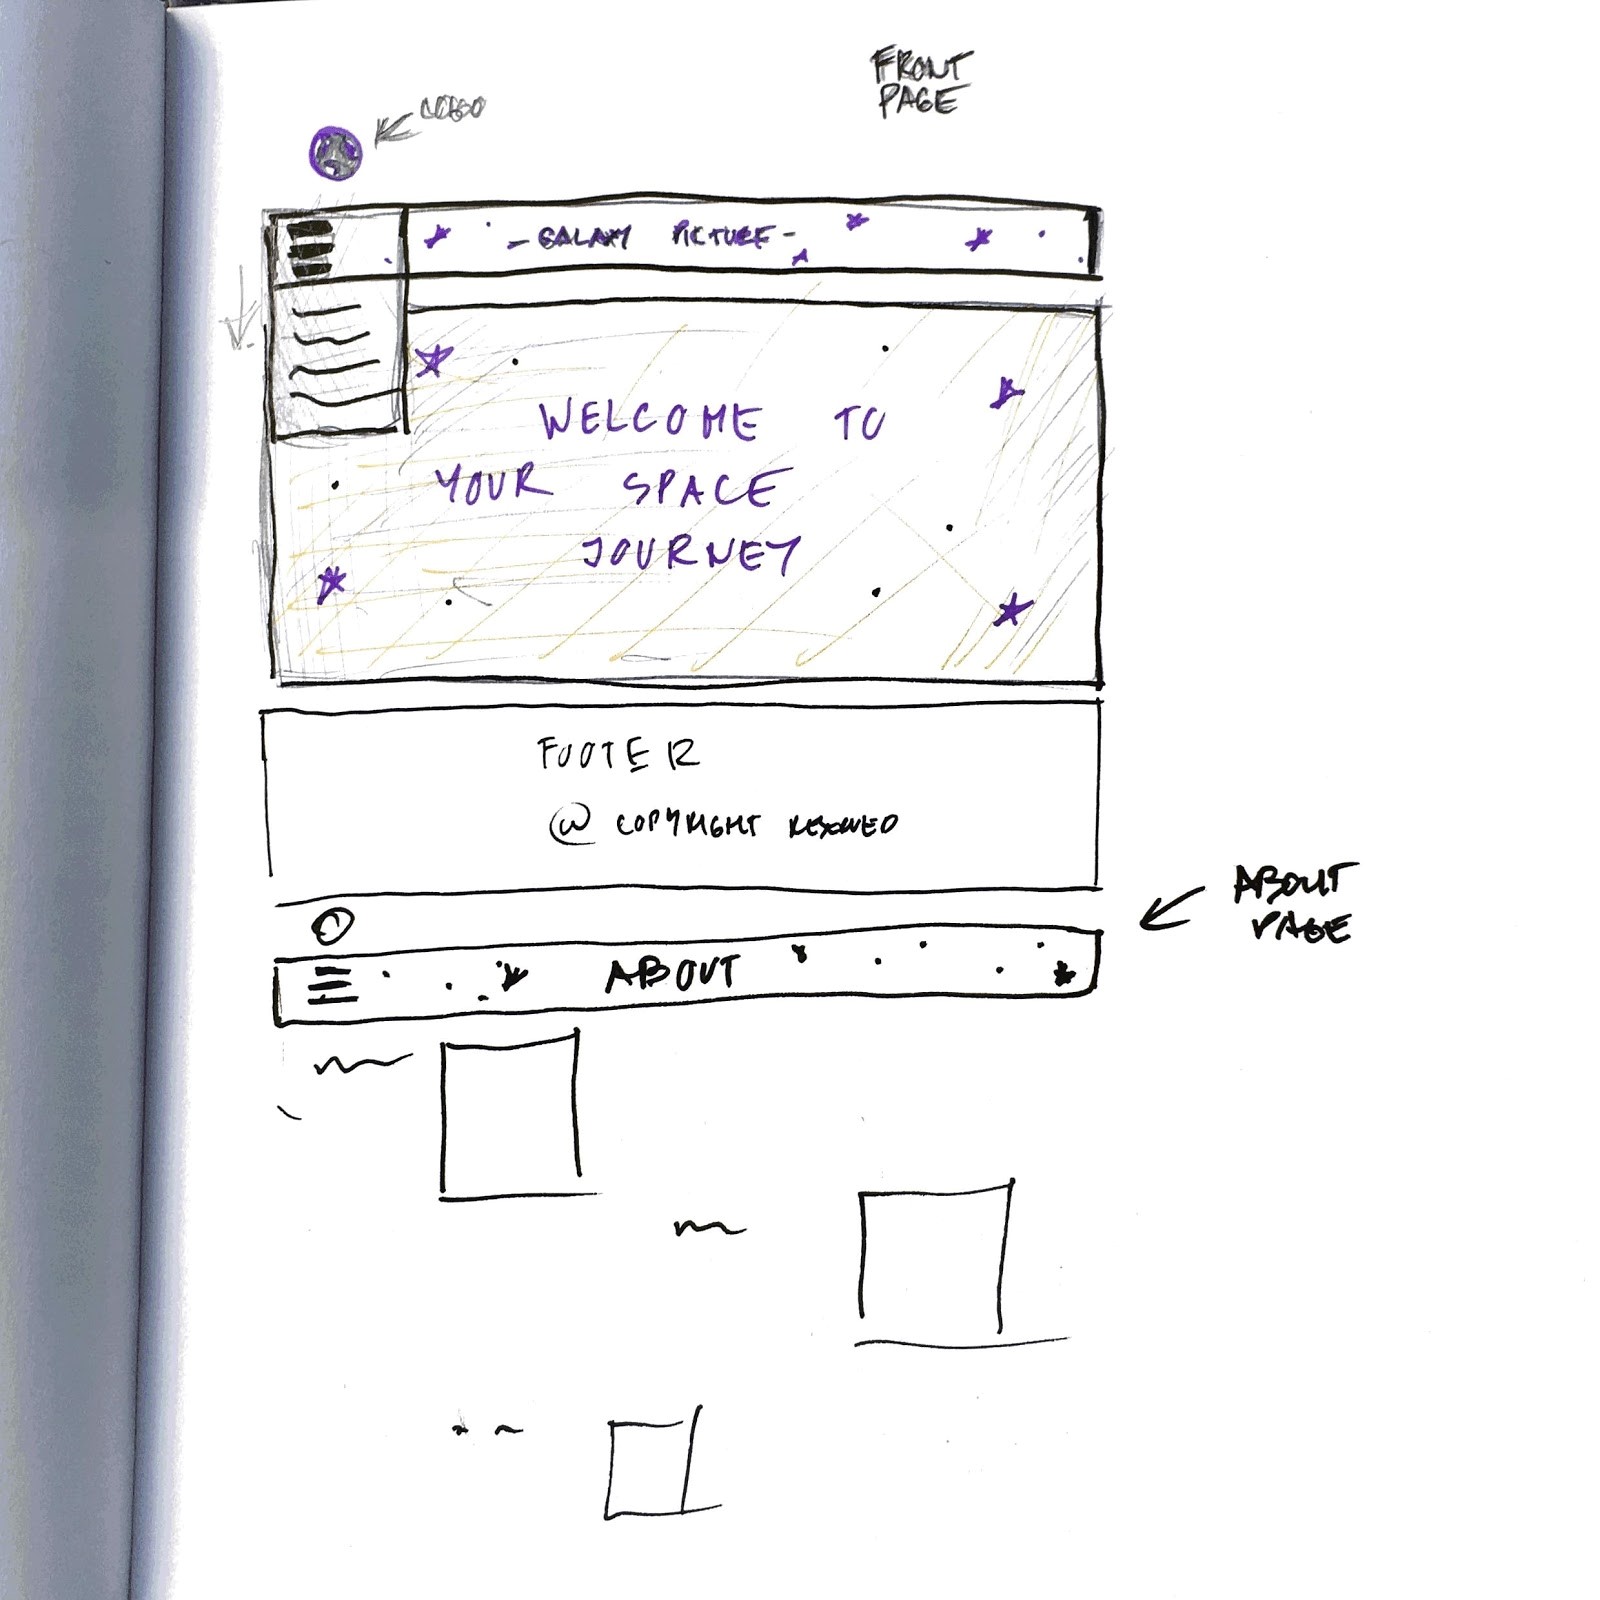 FRONT
PAGE
LOGO
- GALAXY PICTURE -
WELCOME TO
YOUR SPACE
JOURNEY
FOOTER
@ COPYRIGHT RESERVED
ABOUT
PAGE
ABOUT